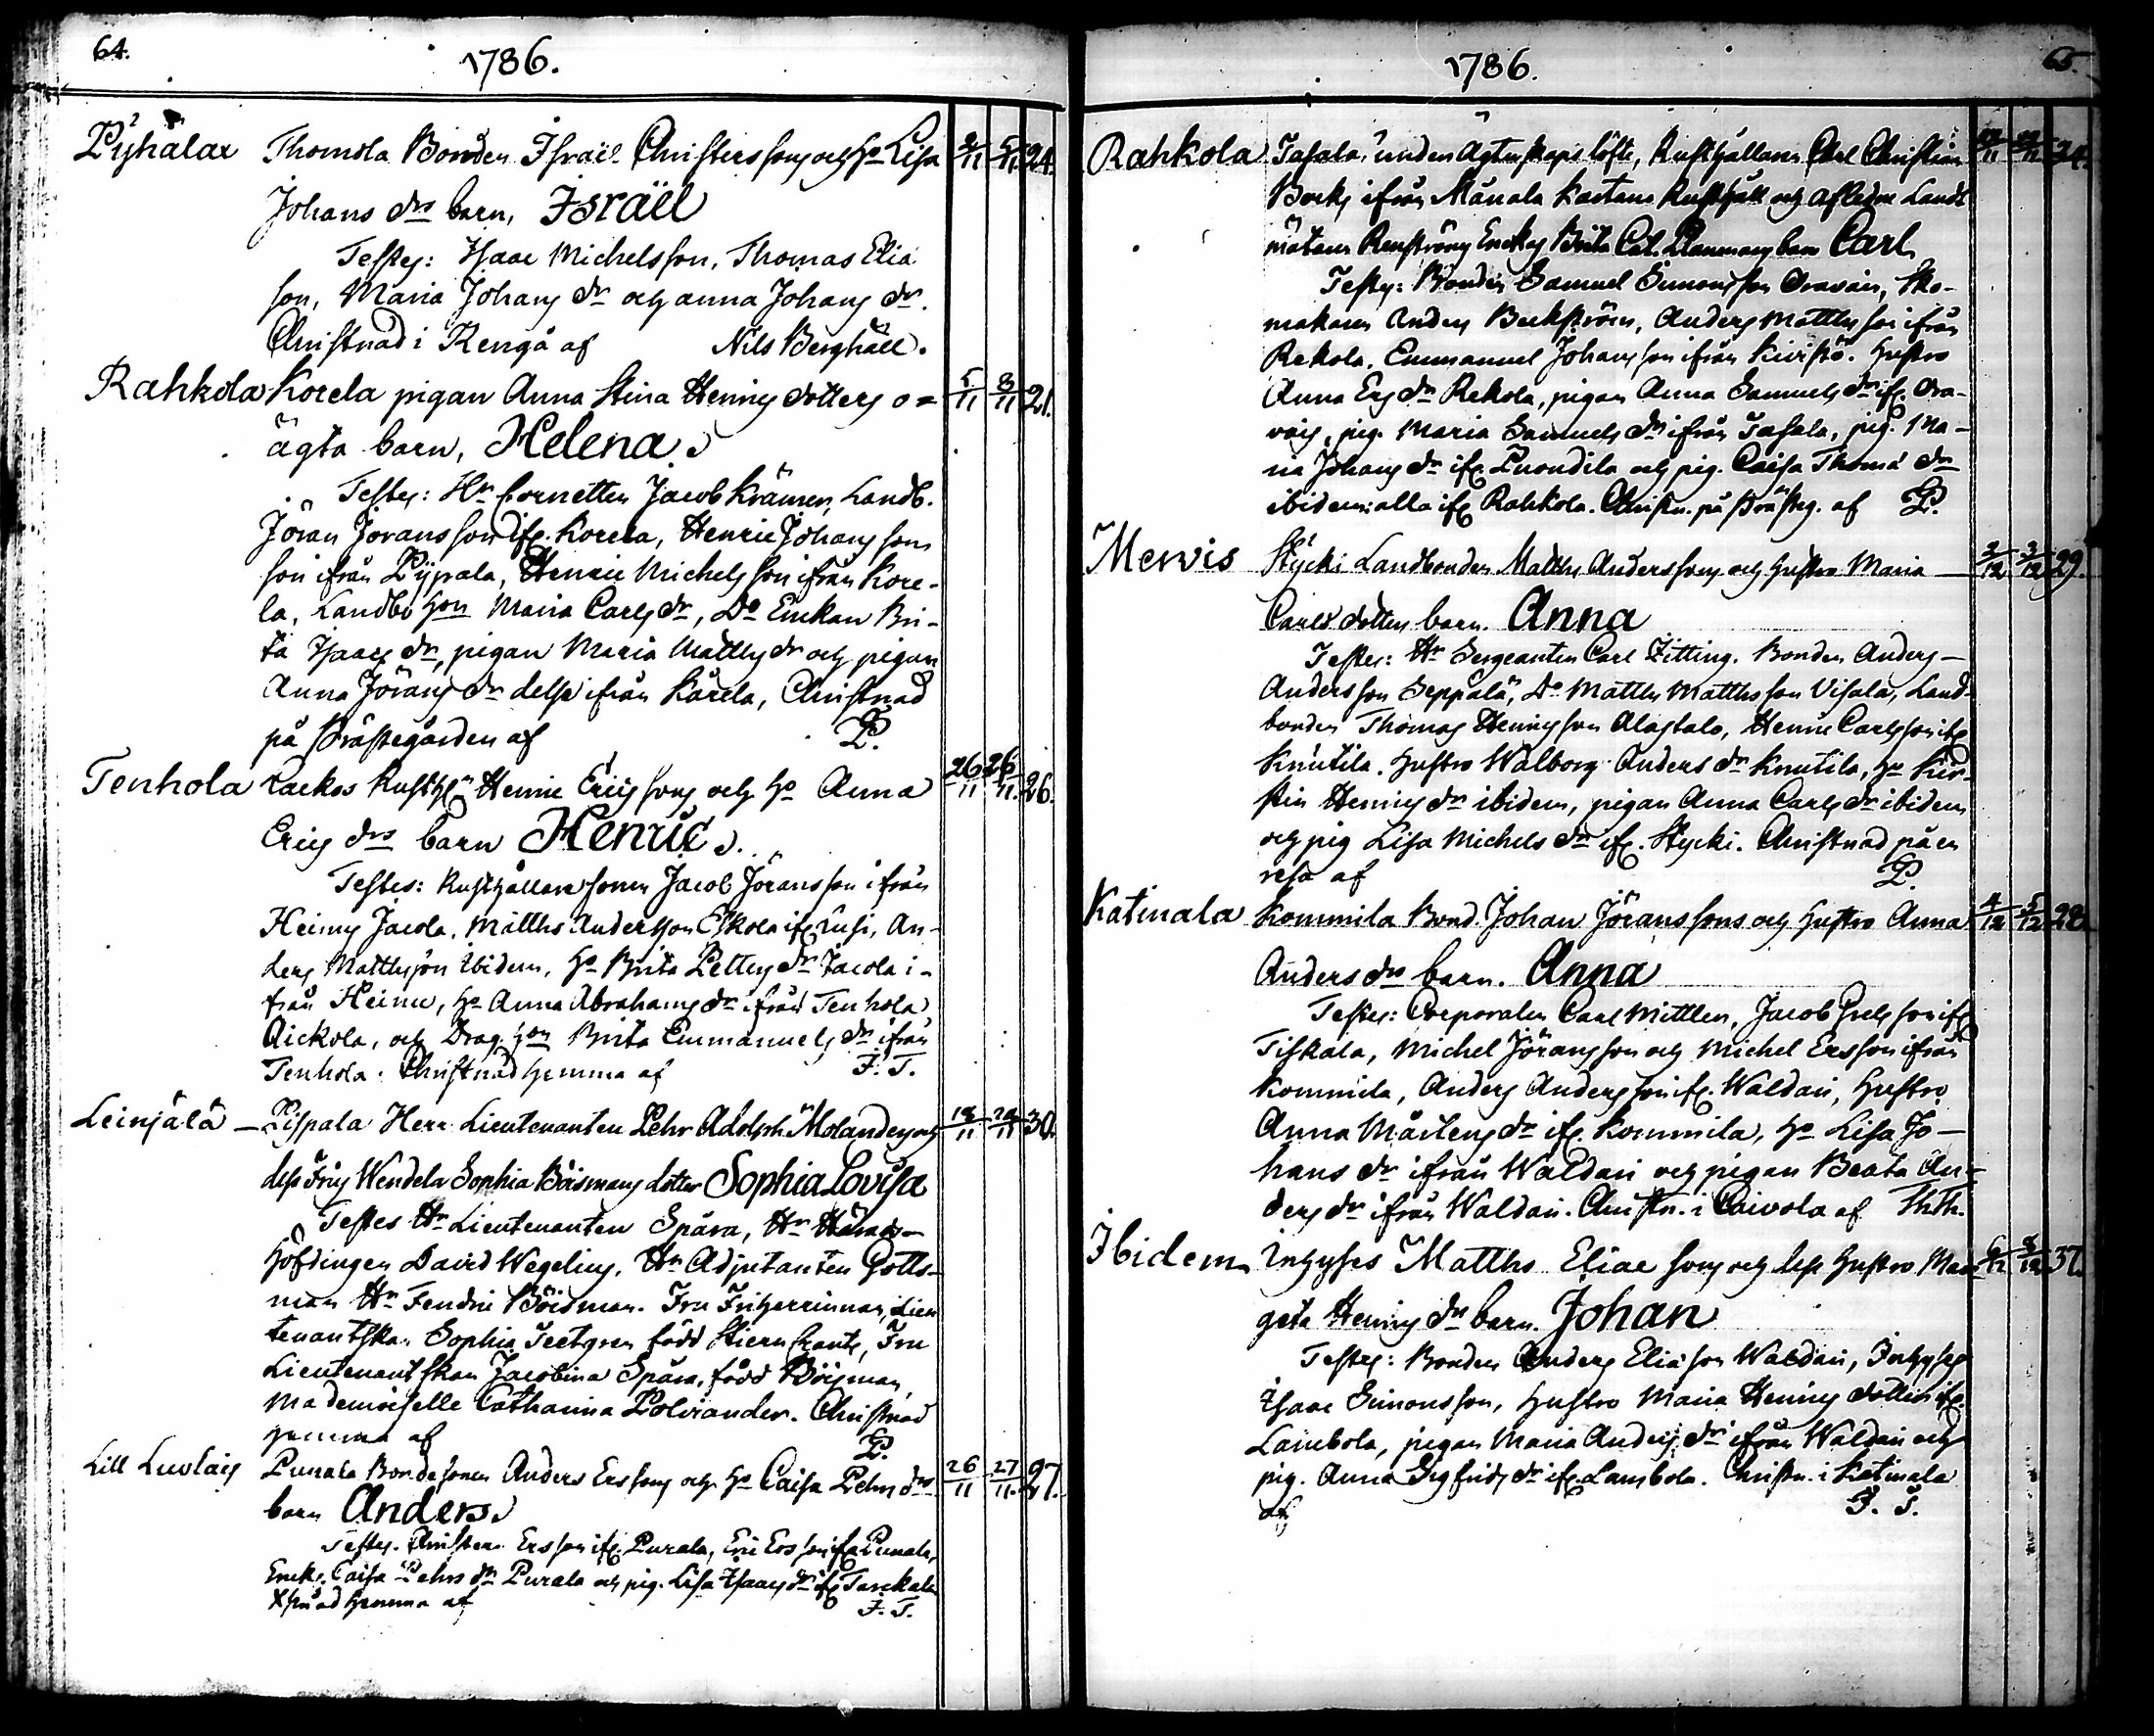 64.
1786.
Pyhälax Thomola Bonden Israel Christerssons och Ho Lisa 3/11 5/11 24.
Johans drs barn, Israël
Testes: Isaac Michelsson, Thomas Elia
son, Maria Johans dr och Anna Johans dr.
Christnad i Rengå af Nils Berghäll.
Rahkola Korela pigan Anna Stina Henrics dotters o= 5/11 8/11 21.
ägta barn, Helena.
Testes: Hr Cornetten Jacob Krämer, Landb.
Jöran Joransson ifr. Korela, Henric Johans sons
son ifrån Pijpala, Henric Michelsson ifrån Kore-
la, Landbo hon Maria Carls dr, Do Enckan Bri-
ta Isaacs dr, pigan Maria Matths dr och pigan
Anna Jörans dr desse ifrån Kårela, Christnad
på Prästegården af P.
Tenhola Lackos Rusth. Henric Erics sons och Ho Anna 26/11 26/11. 26.
Erics drs barn Henric.
Testes: Rusthållare sonen Jacob Jöransson ifrån
Heinu Jacola, Matths Andersson Eskola ifr. Lusi, An-
ders Matthsson ibidem, Ho Brita Petters dr Jacola i-
från Heinu, Ho Anna Abrahams dr ifrån Tenhola
Aickola, och Drag. hon Brita Emmanuels dr ifrån
Tenhola. Christnad hemma af F. T.
Leinjälä - Pispala Herr Lieutenanten Pehr Adolph Molanders och 18/11 20/11 30.
dess Frus Wendela Sophia Böismans dotter Sophia Lovisa
Testes Hr Lieutenanten Spåra, Hr Härads-
höfdingen David Wegelius, Hr Adjutanten Gotts-
man Hr Fendric Böisman. Fru Friherrinnan, Lieu
tenantskan Sophia Teetgren född Stiern Crantz, Fru
Lieutenantskan Jacobina Spåra, född Böisman,
Mademoiselle Catharina Polviander. Christnad
hemma af P.
Lill Luolais Punala Bondesonen Anders Erssons och Ho Caisa Pehrs drs 26/11 27/11. 27.
barn Anders.
Testes. Christer Ersson ifr. Purala, Eric Ersson ifr. Punala,
Enck. Caisa Pehrs dr Purala och pig. Lisa Isaacs dr ifr. Tarckala
Xstnad hemma af F. T.
65.
1786.
Rahkola Tasala, under Ägtenskaps löfte, Rusthållaren Carl Christian 24.
Becks ifrån Månala Kartano Rusthåll och afledne Landt
mätaren Renströms Enckas Brita Cat. barn Carl
Testes: Bonden Samuel Simonsson Oravais, Sko-
makaren Anders Beckström, Anders Matthsson ifrån
Rekola, Emmanuel Johansson ifrån Kivistö. Hustro
Anna Ers dr Rekola, pigan Anna Samuels dr ifr. Ora-
vais, pig. Maria Samuels dr ifrån Tasala, pig. Ma-
ria Johans dr ifr. Puondila och pig. Caisa Thomæ dr
ibidem: alla ifr. Rahkola. Christn. på Prästeg. af P.
Mervis Stycki Landbonden Matths Anderssons och hustro Maria 2/12 3/12 29.
Carls dotters barn. Anna
Testes: Hr Sergeanten Carl Zitting. Bonden Anders
Andersson Seppälä, Do Matths Matthsson Uisala, Land-
bonden Thomas Henricsson Alastalo, Henric Carlsson ifr.
Knutila. Hustro Walborg Anders dr Knutila, Ho Kir-
stin Henrics dr ibidem, pigan Anna Carls dr ibidem
och pig Lisa Michels dr ifr. Stycki. Christnad på en
resa af P.
Katinala Kommila Bond. Johan Jöranssons och hustro Anna 4/12 5/12 28
Anders drs barn. Anna
Testes: Corporalen Carl Mittler, Jacob ifr
Tiskala, Michel Jöransson och Michel Ersson ifrån
Kommila, Anders Andersson ifr. Waldari, Hustro
Anna Mårtens dr ifr. Kommila, Ho Lisa Jo-
hans dr ifrån Waldari och pigan Beata An-
ders dr ifrån Waldari. Christn. i Caivola af Th Th.
Ibidem Inhyses Matths Eliae sons och dess hustro Mar 6/12 8/12 37.
geta Henrics drs barn. Johan
Testes: Bonden Anders Eliæson Waldari, Inhyses
Isaac Simonsson, Hustro Maria Henrics dotter ifr.
Lambola, pigan Maria Anders dr ifrån Waldari och
pig. Anna Sigfrids dr ifr. Lambola. Christn. i Katinala
af F. T.